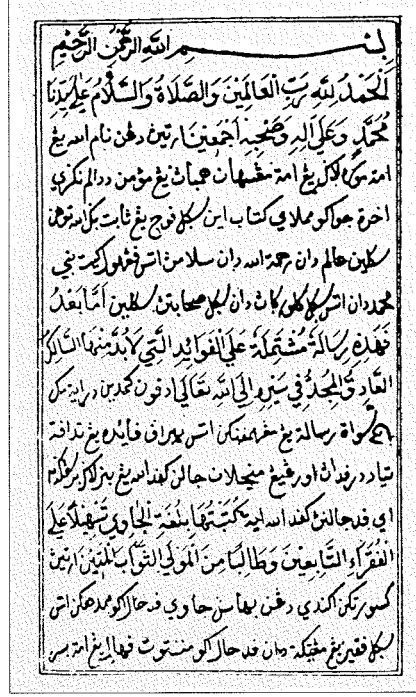 بِسْمِ اللهِ الرَّحْمٰنِ الرَّحِيْمِ
اَلْحَمْدُ لِلّٰهِ رَبِّ الْعَالَمِيْنَ وَالصَّلَاةُ وَالسَّلَامُ عَلٰى سَيِّدِنَا
مُحَمَّدٍ وَعَلٰى اٰلِهِ وَصَحْبِهِ اَجْمَعِيْنَ ارتين دڠن نام الله يڠ
امة موره لاݢي يڠ امة مڠسيهان همبات يڠ مؤمن ددالم نݢري
اخرة جوكو مملائي كتاب اين سݢل فوج يڠ ثابت بݢ الله توهن
سكلين عالم دان رحمة الله دان سلامڽ اتس فڠهولو كيت نبي
محمد دان اتس سݢل دان سݢل صحابتڽ سكلين اَمَّا بَعْدُ
فَهٰذِهِ رِسَالَةٌ مُشْتَمِلَةٌ عَلَى الْفَوَائِدِ الَّتِي لَابُدَّ مِنْهَا السَّالِكُ
الصَّادِقُ الْمُجِدُّ فِي سَيْرِهِ اِلَى اللهِ تَعَالٰى ادفون كمدين درايت مك
سوات رسالة يڠ اتس ببراف فائده يڠ تدافة
تياد درفدان اورڠ يڠ منجالن جالن كفد الله يڠ بنر لاݢي
اي فد جالنڽ كفد الله ايت كَتَبْتُهَا بِلُغَةِ الْجَاوِي تَسْهِيْلًا عَلَى
الْفُقَرَاءِ التَّابِعِيْنَ وَطَالِبًا مِنَ الْمَوْلَى الثَّوَابَ الْمُبِيْنَ ارتين
كسورتكن اكندي دڠن بهاس جاوي فدحال اكو ممدهكن اتس
سݢل فقير يڠ مڠيكة دان فدحال اكو مننتوت فهلا يڠ امة بسر